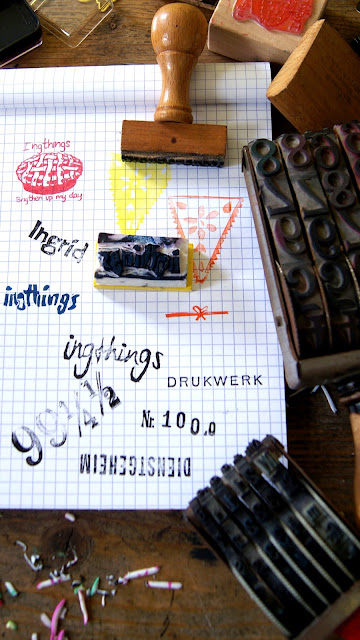 Ingthings
Brighten up my day
Ingrid
ingthings
ingthings
DRUKWERK
99 1/4 1/2
Nr. 100,0
DIENSTGEHEIM